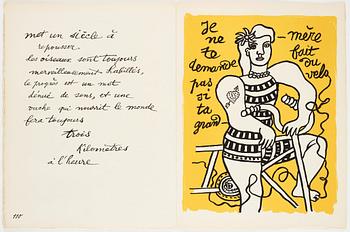 met un siècle à
repousser.
les oiseaux sont toujours
merveilleusement habillés,
le progrès est un mot
dénué de sens, et une
vache qui nourrit le monde
fera toujours
trois
kilomètres
à l'heure
Je
ne
te
demande
pas
si
ta
grand
mère
fait
du
vélo